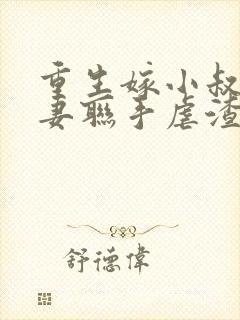 重生嫁小叔
妻聯手虐渣
舒德偉